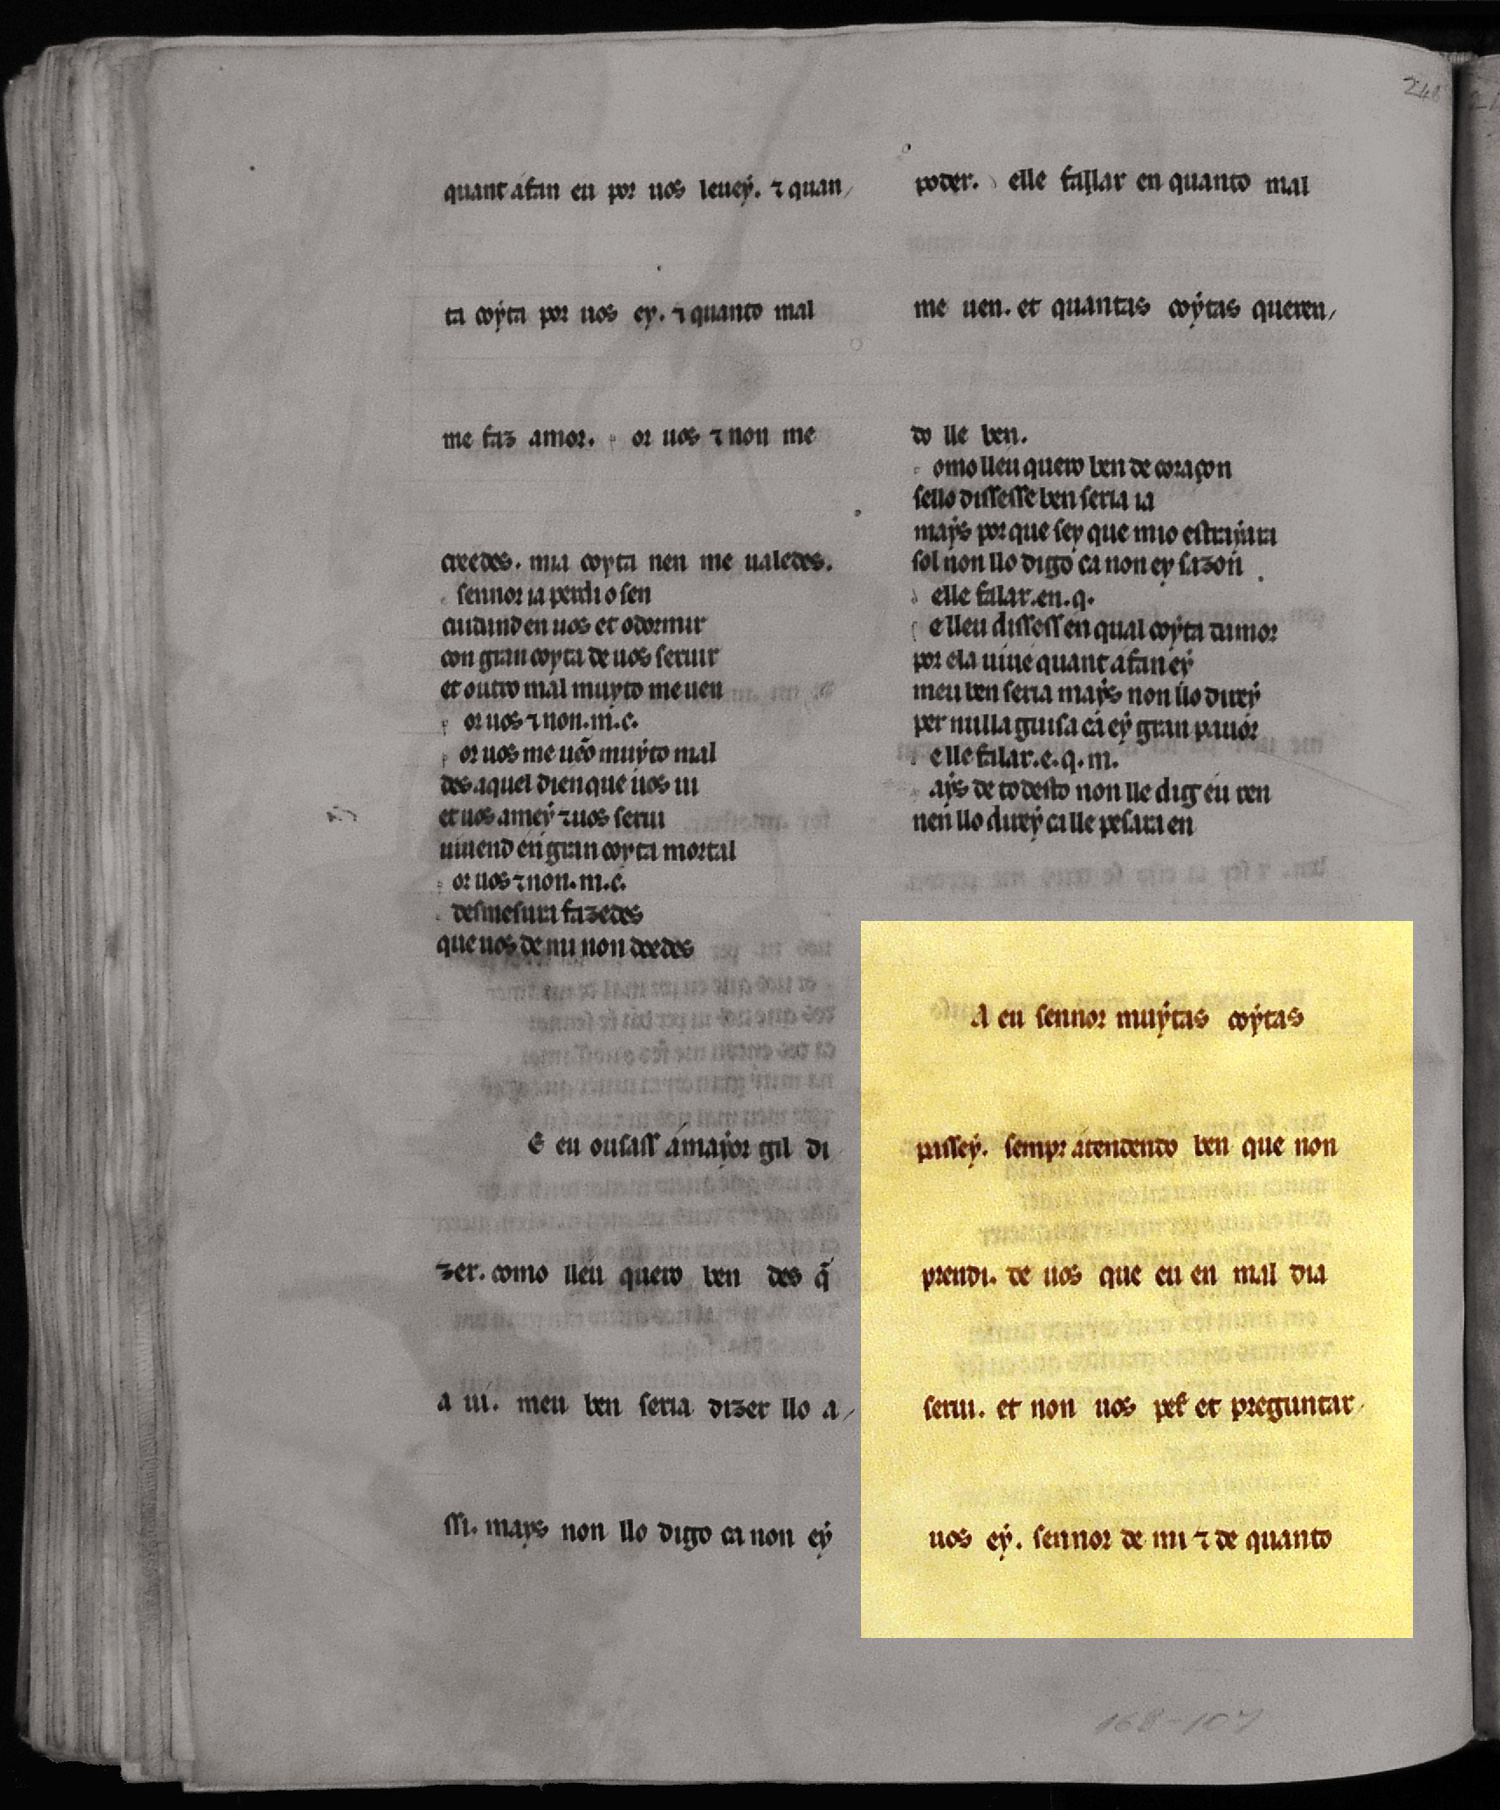 quant afan eu por uos leuey. ⁊ quan/
ta coyta por uos ey. ⁊ quanto mal
me faz amor. or uos ⁊ non me
creedes. mia coyta nen me ualedes.
sennor ia perdi o sen
cuidand en uos et o dormir
con gran coyta de uos seruir
et outro mal muyto me uen
or uos ⁊ non. m. c.
or uos me uẽo muyto mal
des aquel dien que uos ui
et uos amey ⁊ uos serui
uiuend en gran coyta mortal
or uos ⁊ non. m. c.
desmesura fazedes
que uos de mi non doedes
E eu ousass a mayor gil di
zer. como lleu quero ben des q̃
a ui. meu ben seria dizer llo a/
ssi. mays non llo digo ca non ey
poder. elle fallar en quanto mal
me uen. et quantas coytas queren/
do lle ben.
omo lleu quero ben de coraçon
sello dissesse ben seria ia
mays por que sey que mio estrayara
sol non llo digo ca non ey sazon
elle falar. en. q.
e lleu dissess en qual coyta damor
por ela uiue quant afan ey
meu ben seria mays non llo direy
per nulla guisa ca ey gran pauor
elle falar. e. q. m.
ays de todesto non lle dig eu ren
nen llo direy ca lle pesara en
A eu sennor muytas coytas
passey. sempr atendendo ben que non
prendi. de uos que eu en mal dia
serui. et non uos pes et preguntar/
uos ey. sennor de mi ⁊ de quanto
248
168-107